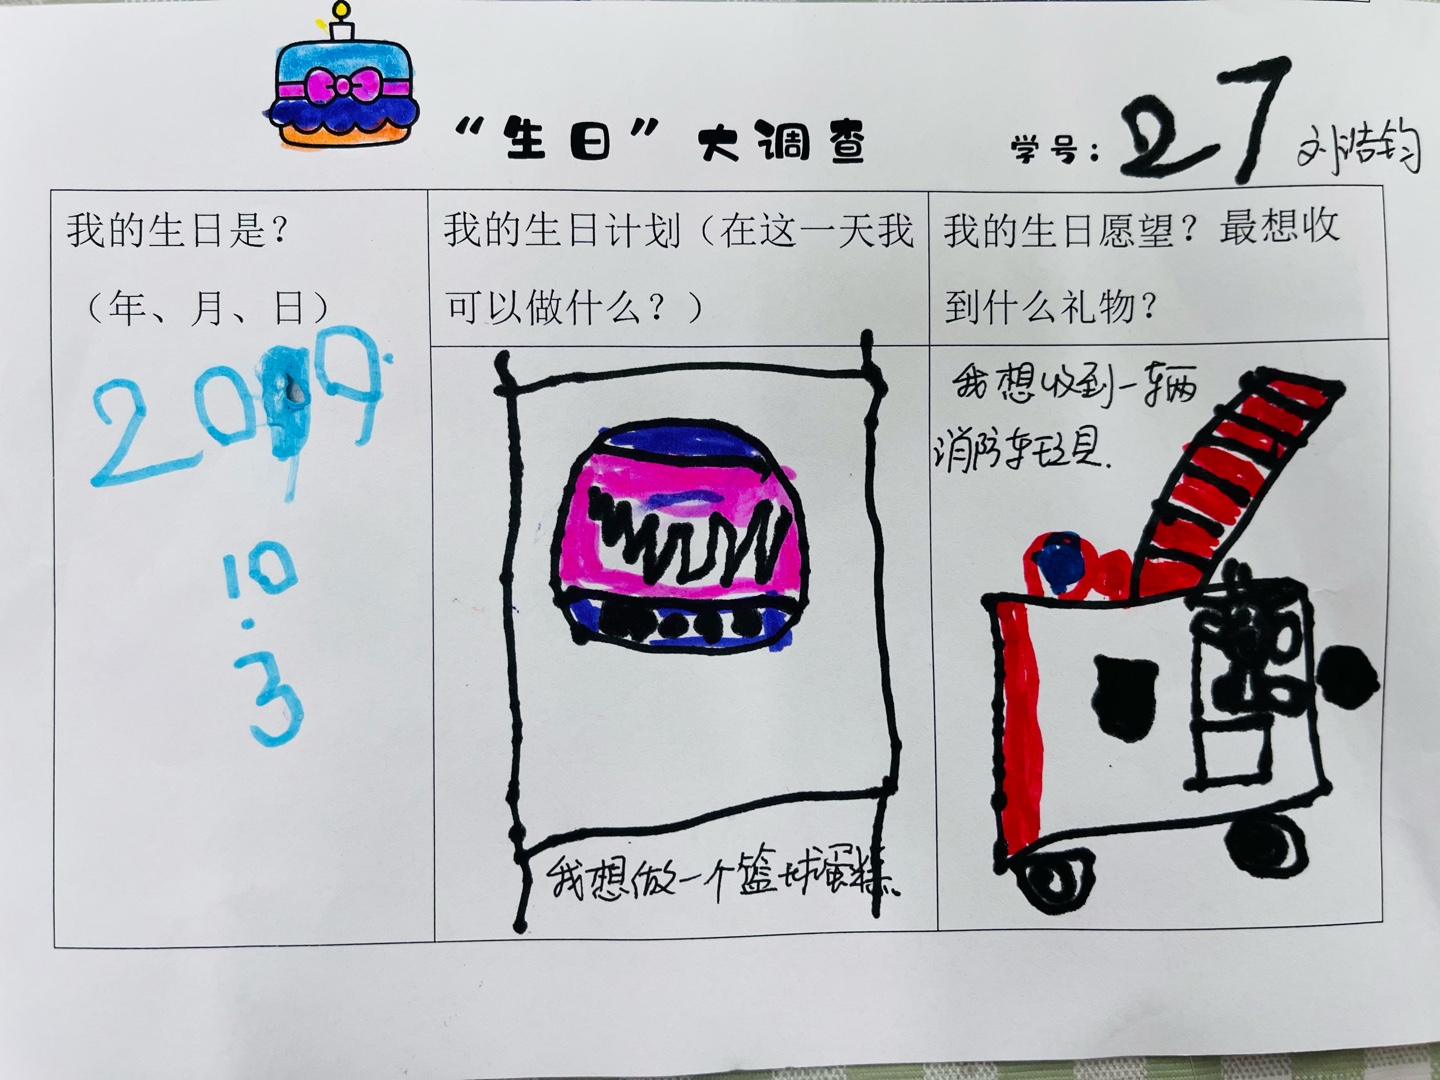 “生日”大调查
学号：27 刘浩钧
我的生日是？
（年、月、日）
10
.
3
我的生日计划（在这一天我
可以做什么？）
我想做一个篮球蛋糕.
我的生日愿望？最想收
到什么礼物？
我想收到一辆
消防车玩具.